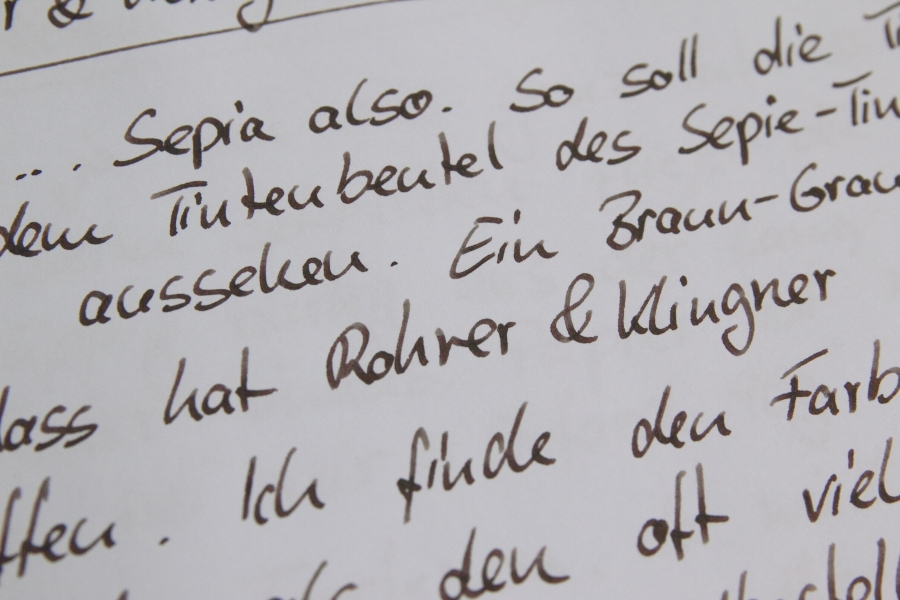 r &
... Sepia also. So soll die
dem Tintenbeutel des Sepie-Tin
aussehen. Ein Braun-Grau
dass hat Rohrer & Klingner
ffen. Ich finde den Farb
den oft viel